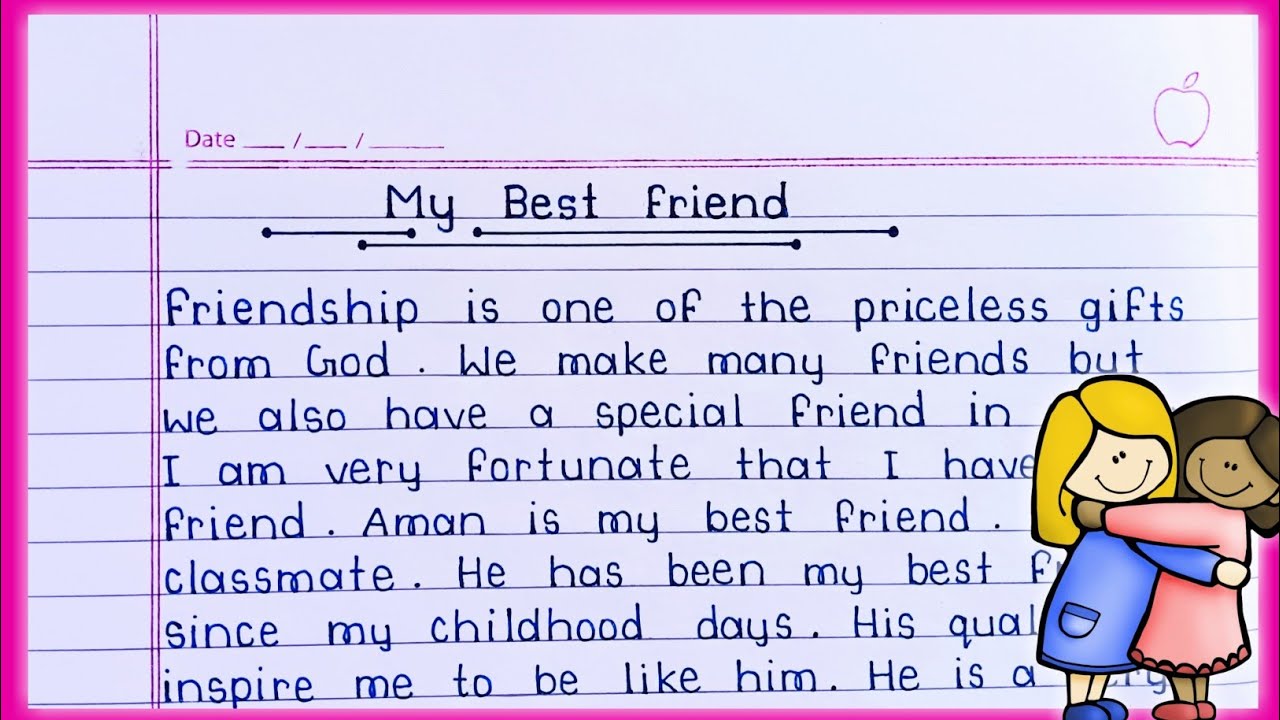 Date ___ /___ /______
My Best Friend
Friendship is one of the priceless gifts
from God. We make many friends but
we also have a special friend in
I am very fortunate that I have
friend. Aman is my best friend.
classmate. He has been my best
since my childhood days. His
inspire me to be like him. He is a